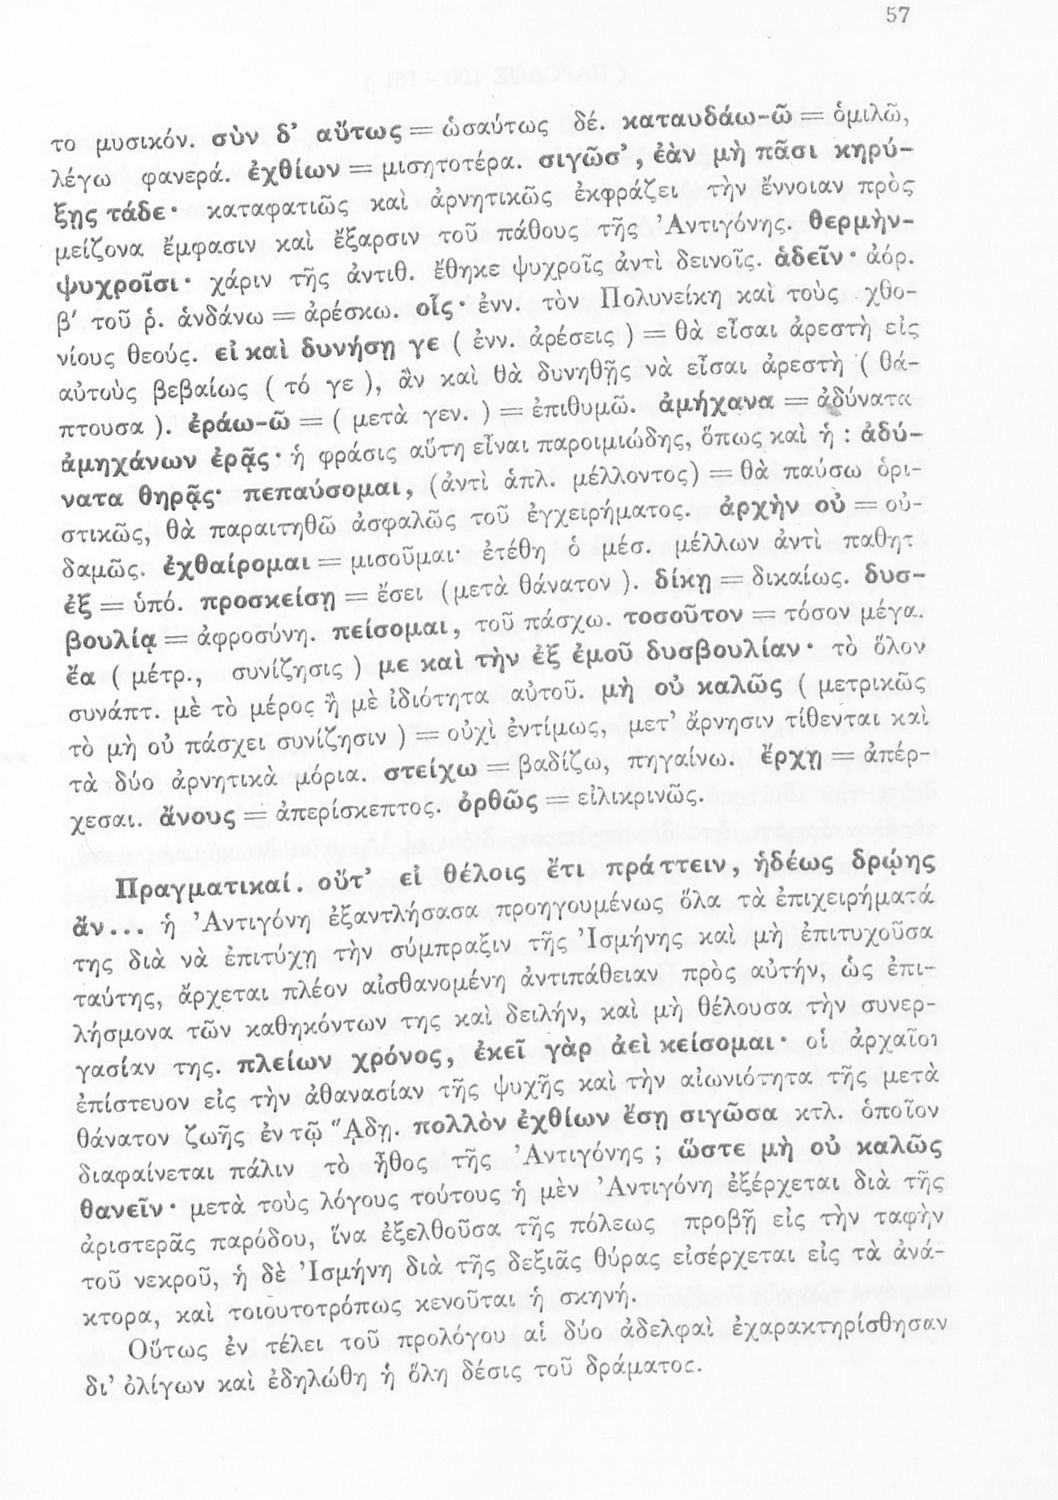 57
το μυσικόν. σὺν δ’ αὔτως = ὡσαύτως δέ. καταυδάω-ῶ = ὁμιλῶ,
λέγω φανερά. ἐχθίων = μισητοτέρα. σιγῶσ’, ἐὰν μὴ πᾶσι κηρύ-
ξῃς τάδε· καταφατιῶς καὶ ἀρνητικῶς ἐκφράζει τὴν ἔννοιαν πρὸς
μείζονα ἔμφασιν καὶ ἔξαρσιν τοῦ πάθους τῆς Ἀντιγόνης. θερμὴν-
ψυχροῖσι· χάριν τῆς ἀντιθ. ἔθηκε ψυχροῖς ἀντὶ δεινοῖς. ἁδεῖν· ἀόρ.
β′ τοῦ ῥ. ἁνδάνω = ἀρέσκω. οἷς· ἐνν. τὸν Πολυνείκη καὶ τοὺς χθο-
νίους θεούς. εἰ καὶ δυνήσῃ γε ( ἐνν. ἀρέσεις ) = θὰ εἶσαι ἀρεστὴ εἰς
αὐτοὺς βεβαίως ( τό γε ), ἂν καὶ θὰ δυνηθῇς νὰ εἶσαι ἀρεστὴ ( θά-
πτουσα ). ἐράω-ῶ = ( μετὰ γεν. ) = ἐπιθυμῶ. ἀμήχανα = ἀδύνατα
ἀμηχάνων ἐρᾷς· ἡ φράσις αὕτη εἶναι παροιμιώδης, ὅπως καὶ ἡ : ἀδύ-
νατα θηρᾷς· πεπαύσομαι, (ἀντὶ ἁπλ. μέλλοντος) = θὰ παύσω ὁρι-
στικῶς, θὰ παραιτηθῶ ἀσφαλῶς τοῦ ἐγχειρήματος. ἀρχὴν οὐ = οὐ-
δαμῶς. ἐχθαίρομαι = μισοῦμαι· ἐτέθη ὁ μέσ. μέλλων ἀντὶ παθητ
ἐξ = ὑπό. προσκείσῃ = ἔσει (μετὰ θάνατον ). δίκῃ = δικαίως. δυσ-
βουλίᾳ = ἀφροσύνη. πείσομαι, τοῦ πάσχω. τοσοῦτον = τόσον μέγα.
ἔα ( μέτρ., συνίζησις ) με καὶ τὴν ἐξ ἐμοῦ δυσβουλίαν· τὸ ὅλον
συνάπτ. μὲ τὸ μέρος ἢ μὲ ἰδιότητα αὐτοῦ. μὴ οὐ καλῶς ( μετρικῶς
τὸ μὴ οὐ πάσχει συνίζησιν ) = οὐχὶ ἐντίμως, μετ’ ἄρνησιν τίθενται καὶ
τὰ δύο ἀρνητικὰ μόρια. στείχω = βαδίζω, πηγαίνω. ἔρχῃ = ἀπέρ-
χεσαι. ἄνους = ἀπερίσκεπτος. ὀρθῶς = εἰλικρινῶς.
Πραγματικαί. οὔτ’ εἰ θέλοις ἔτι πράττειν, ἡδέως δρῴης
ἄν... ἡ Ἀντιγόνη ἐξαντλήσασα προηγουμένως ὅλα τὰ ἐπιχειρήματά
της διὰ νὰ ἐπιτύχῃ τὴν σύμπραξιν τῆς Ἰσμήνης καὶ μὴ ἐπιτυχοῦσα
ταύτης, ἄρχεται πλέον αἰσθανομένη ἀντιπάθειαν πρὸς αὐτήν, ὡς ἐπι-
λήσμονα τῶν καθηκόντων της καὶ δειλήν, καὶ μὴ θέλουσα τὴν συνερ-
γασίαν της. πλείων χρόνος, ἐκεῖ γὰρ ἀεὶ κείσομαι· οἱ ἀρχαῖοι
ἐπίστευον εἰς τὴν ἀθανασίαν τῆς ψυχῆς καὶ τὴν αἰωνιότητα τῆς μετὰ
θάνατον ζωῆς ἐν τῷ Ἅδῃ. πολλὸν ἐχθίων ἔσῃ σιγῶσα κτλ. ὁποῖον
διαφαίνεται πάλιν τὸ ἦθος τῆς Ἀντιγόνης ; ὥστε μὴ οὐ καλῶς
θανεῖν· μετὰ τοὺς λόγους τούτους ἡ μὲν Ἀντιγόνη ἐξέρχεται διὰ τῆς
ἀριστερᾶς παρόδου, ἵνα ἐξελθοῦσα τῆς πόλεως προβῇ εἰς τὴν ταφὴν
τοῦ νεκροῦ, ἡ δὲ Ἰσμήνη διὰ τῆς δεξιᾶς θύρας εἰσέρχεται εἰς τὰ ἀνά-
κτορα, καὶ τοιουτοτρόπως κενοῦται ἡ σκηνή.
Οὕτως ἐν τέλει τοῦ προλόγου αἱ δύο ἀδελφαὶ ἐχαρακτηρίσθησαν
δι’ ὀλίγων καὶ ἐδηλώθη ἡ ὅλη δέσις τοῦ δράματος.